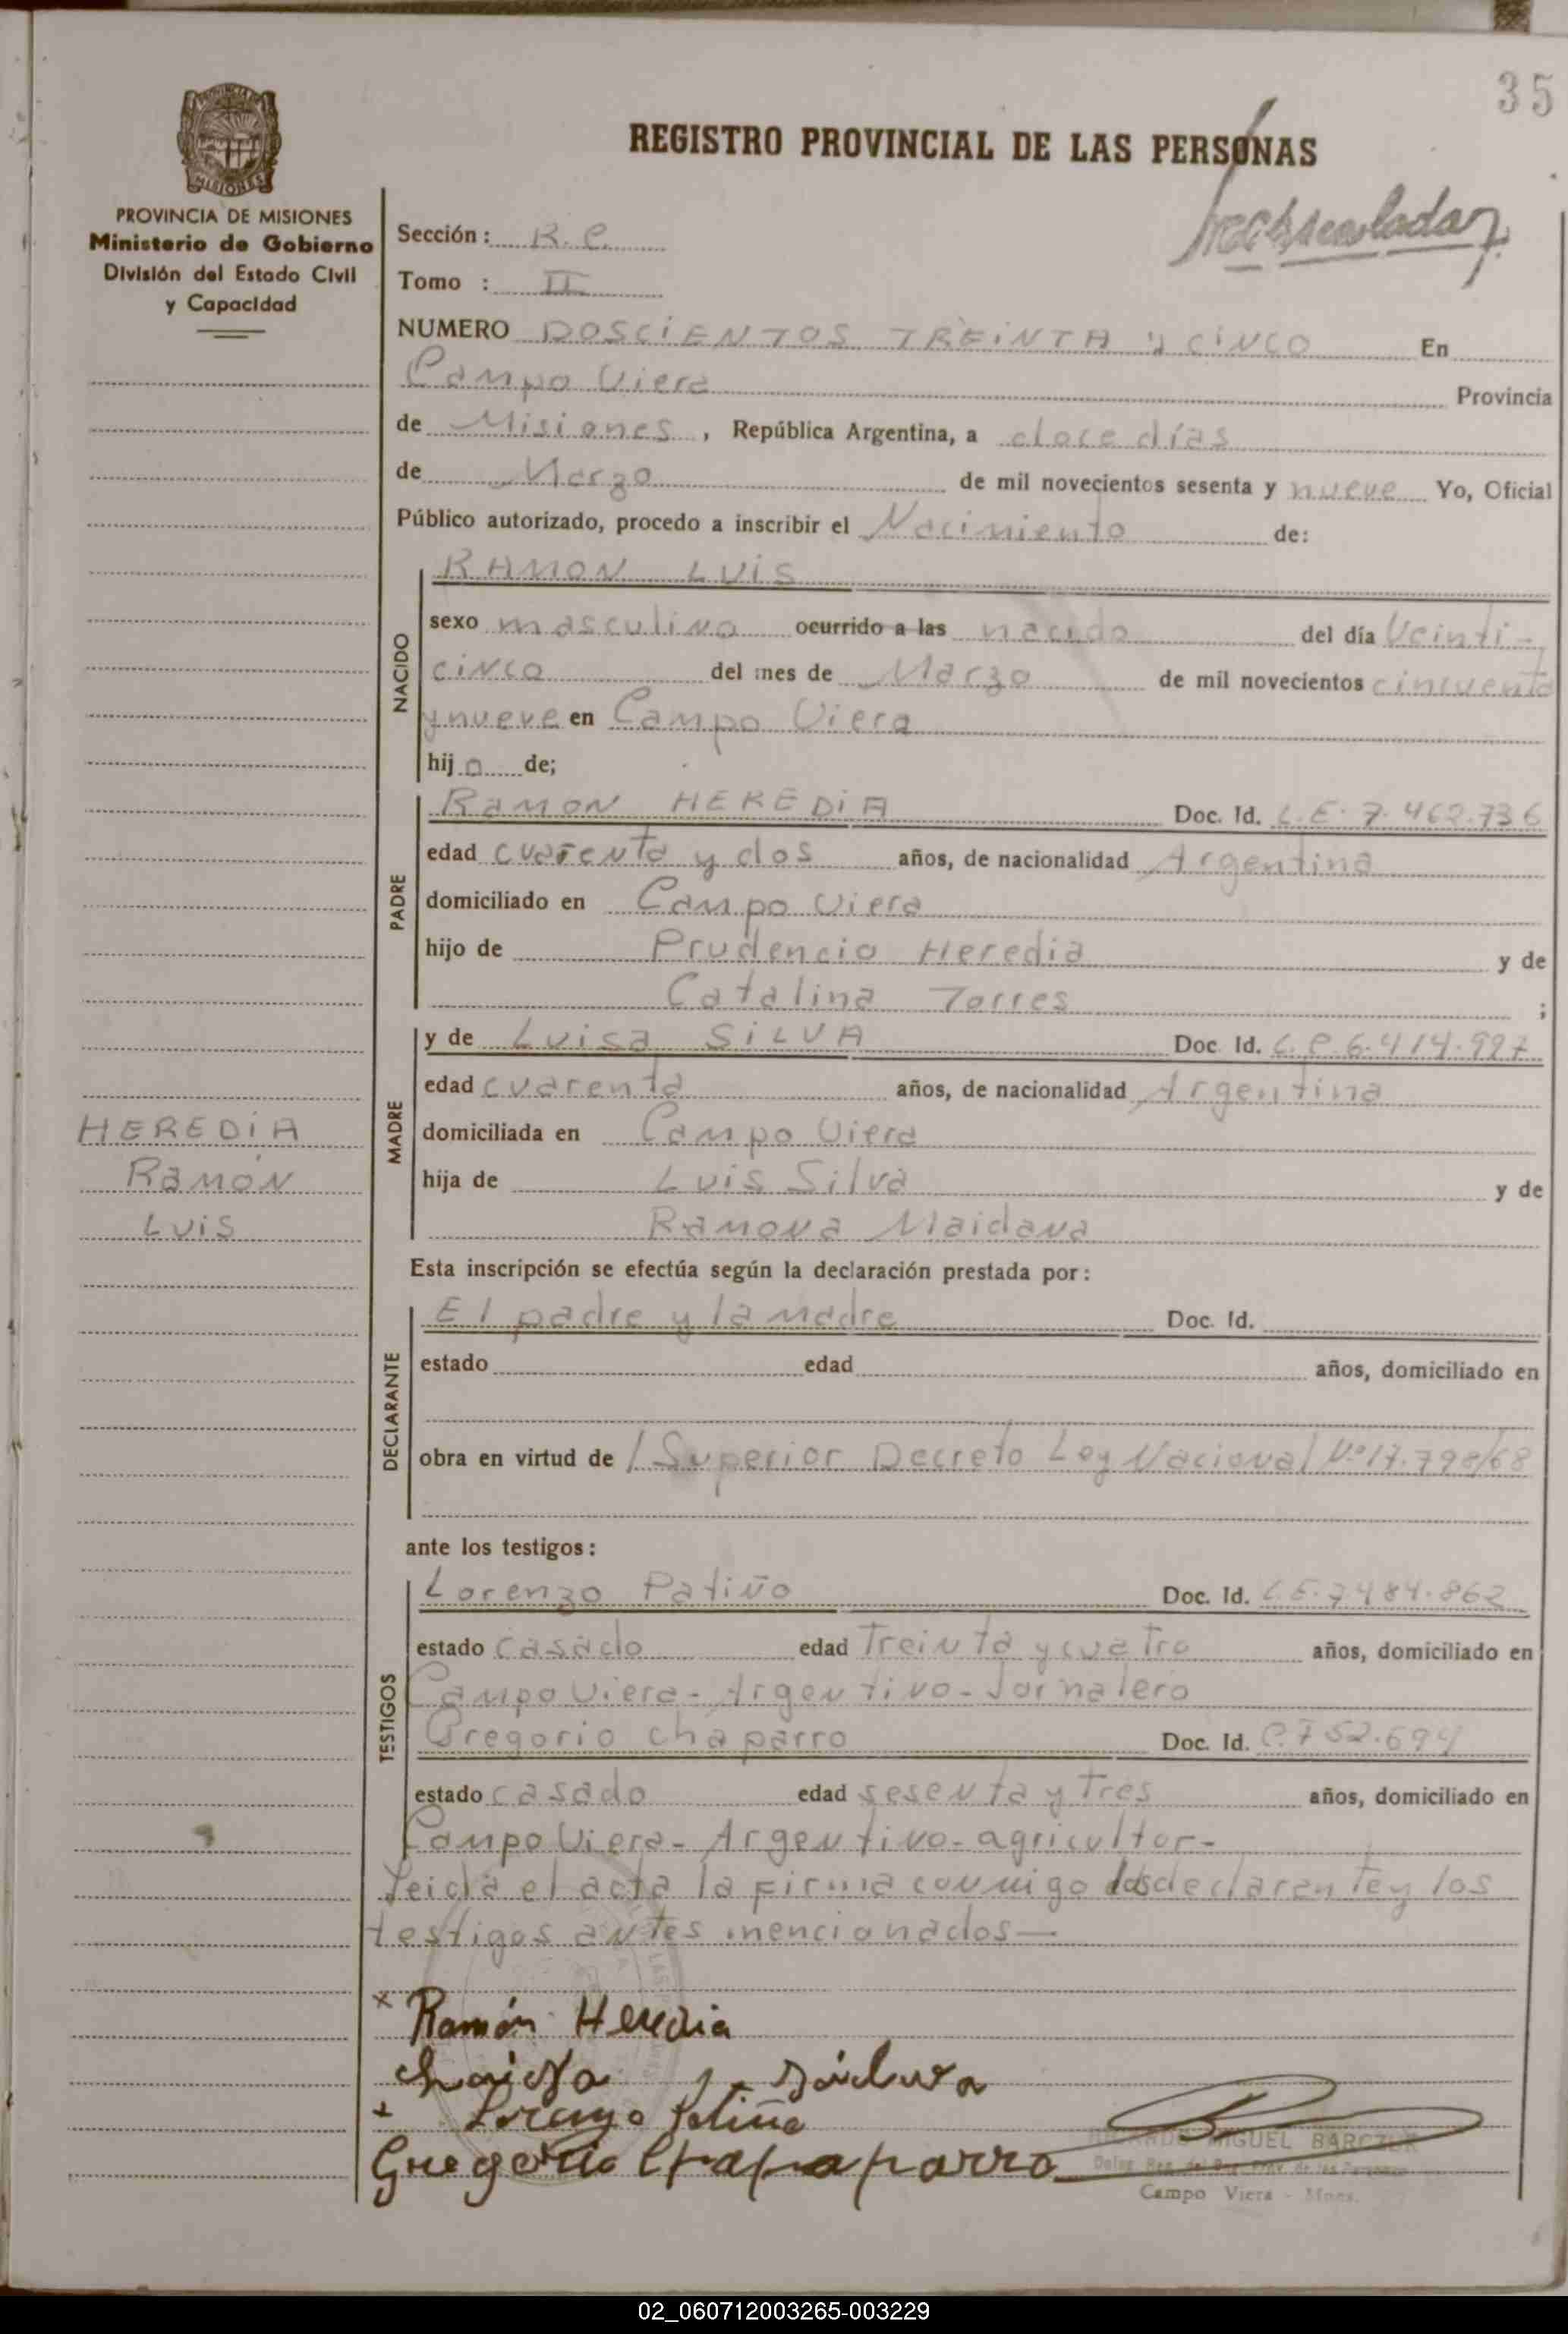 35
REGISTRO PROVINCIAL DE LAS PERSONAS
PROVINCIA DE MISIONES
Ministerio de Gobierno
División del Estado Civil
y Capacidad
Sección: R. C.
Tomo : II
NUMERO DOSCIENTOS TREINTA y CINCO En
Campo Viera Provincia
de Misiones, República Argentina, a doce días
de Marzo de mil novecientos sesenta y nueve Yo, Oficial
Público autorizado, procedo a inscribir el Nacimiento de:
RAMON LUIS
NACIDO
sexo masculino ocurrido a las nacido del día Veinti-
cinco del mes de Marzo de mil novecientos cincuenta
y nueve en Campo Viera
hijo de;
PADRE
Ramon HEREDIA Doc. Id. L.E. 7.462.736
edad cuarenta y dos años, de nacionalidad Argentina
domiciliado en Campo Viera
hijo de Prudencio Heredia y de
Catalina Torres ;
MADRE
y de Luisa SILVA Doc Id. L.C. 6.414.997
edad cuarenta años, de nacionalidad Argentina
domiciliada en Campo Viera
hija de Luis Silva y de
Ramona Maidana
HEREDIA
Ramón
Luis
Esta inscripción se efectúa según la declaración prestada por:
DECLARANTE
El padre y la madre Doc. Id.
estado edad años, domiciliado en
obra en virtud de / Superior Decreto Ley Nacional Nº 17.798/68
ante los testigos:
TESTIGOS
Lorenzo Patiño Doc. Id. L.E. 7.484.862
estado casado edad Treinta y cuatro años, domiciliado en
Campo Viera - Argentino - Jornalero
Gregorio chaparro Doc. Id. C. 752.694
estado casado edad sesenta y Tres años, domiciliado en
Campo Viera - Argentino - agricultor -
Leida el acta la firma conmigo los declarante y los
testigos antes mencionados—
x Ramón Heredia
Lorenzo Patiño
MIGUEL BARCZUK
Campo Viera - Mnes.
02_060712003265-003229